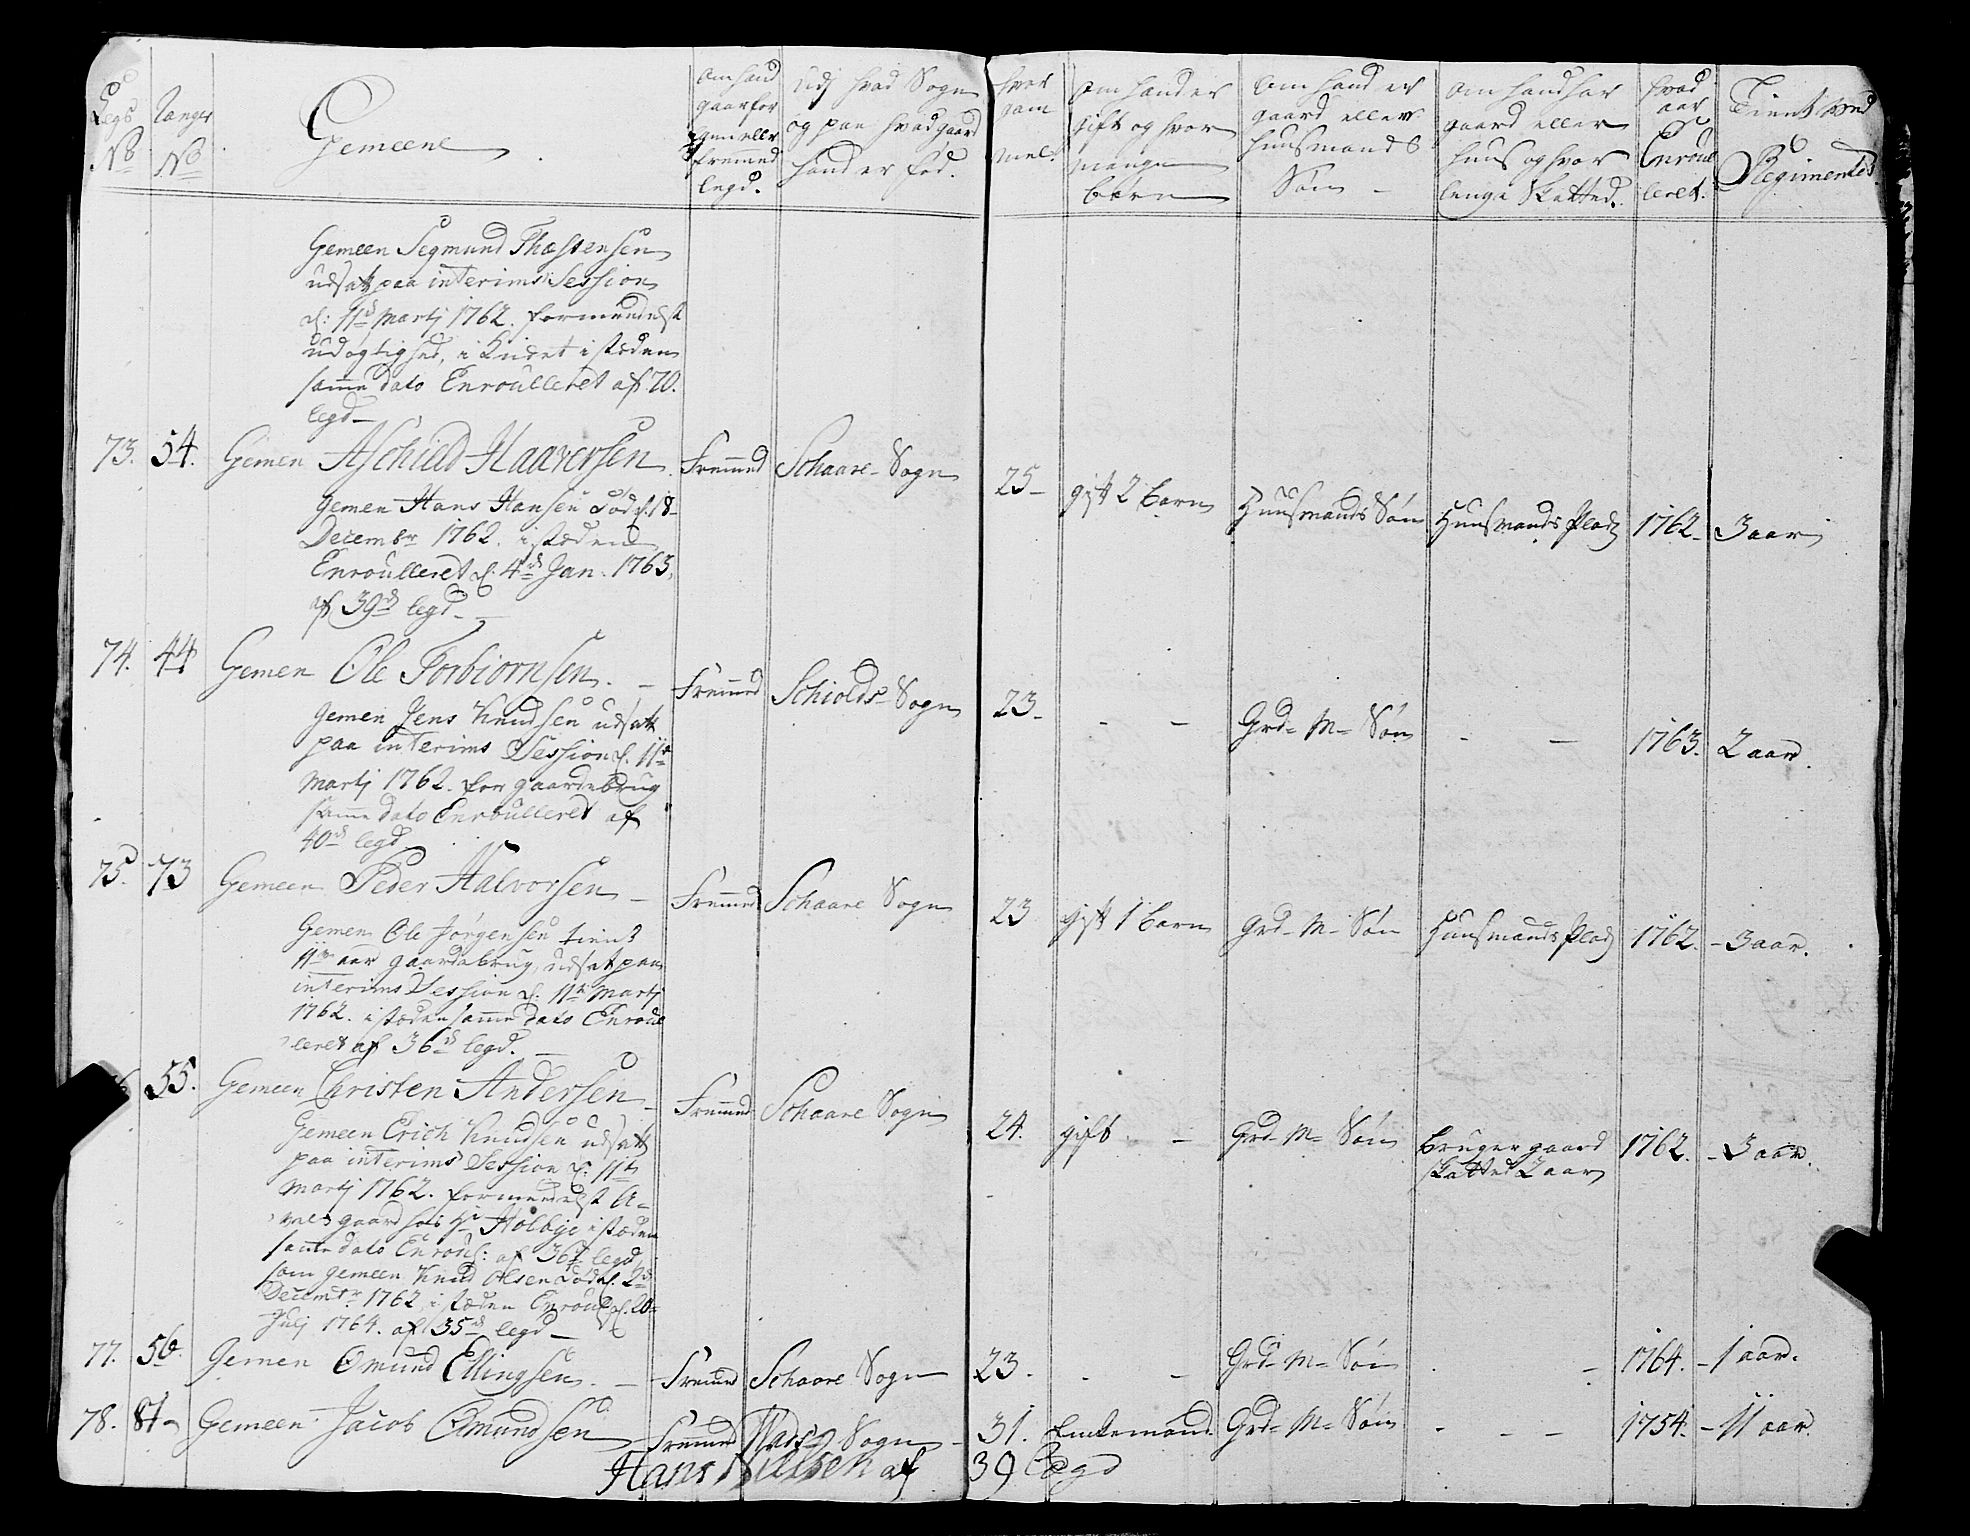 Legs No
Ranger No
Gemeene
om hand gaar for egen eller fremmed legd.
udj hvad Sogn og paa hvad gaard hand er fød.
hvor gam mel.
om hand er gift og hvor mange børn
om hand er gaard eller huusmands Søn
om hand har gaard eller huus og hvor lenge skatted.
hvad aar Enroulleret.
Tient ved Regimentet.
Gemeen Segmund Thostensen
udsat paa interims Session
d: 11te Martj 1762. formedelst
udøgtighed, i Knæet i stæden
samme dato Enroulleret af 70.
legd
73. 54. Gemen Aschield Haaversen Fremmed Schaare Sogn 25 gift 2 barn Huusmands Søn Huusmands Plads 1762. 3 aar
gemen Hans Hansen død d. 18
Decembr 1762. i stæden
Enroulleret d. 4de Jan. 1763.
af 39de legd.
74. 44 Gemen Ole Torbiornsen. Fremmed Schiolds Sogn 23 - - Grd- M- Søn - - 1763. 2 aar.
gemen Jens Knudsen udsatt
paa interims Session d. 11te
Martj 1762. for gaardebrug
samme dato Enroulleret af
40de legd.
75. 73 Gemeen Peder Halvorsen Fremmed Schaare Sogn 23 gift 1 barn Grd- M- Søn Huusmands Plads 1762. - 3 aar.
Gemen Ole Jørgensen tient
11 aar gaardebrug, udsat paa
interims Session d. 11te Martj
1762. i stæden samme dato Enroul
leret af 36de legd.
55. Gemeen Christen Andersen Fremmed Schaare Sogn 24. gift - Grd- M- Søn bruger gaard skatted 2 aar 1762. - 3 aar.
Gemeen Erich Knudsen udsatt
paa interims Session d. 11te
Martj 1762. formedelst A-
vels gaard hos Hr Holbye i stæden
samme dato Enroul: af 36de legd
som gemeen Knud Olsen død d. 2de
Decembr 1762, i stæden Enroul d. 20
Julj 1764. af 35de legd
77. 56. Gemen Omund Ellingsen. Fremmed Schaare Sogn 23. - - Grd- M- Søn - - 1764. - 1 aar.
78. 81 Gemeen Jacob Omundsen Fremmed Sogn 31. Enkemand. Grd- M- Søn - - - 1754. - 11 aar.
Hans Nilssen af 39 Legd